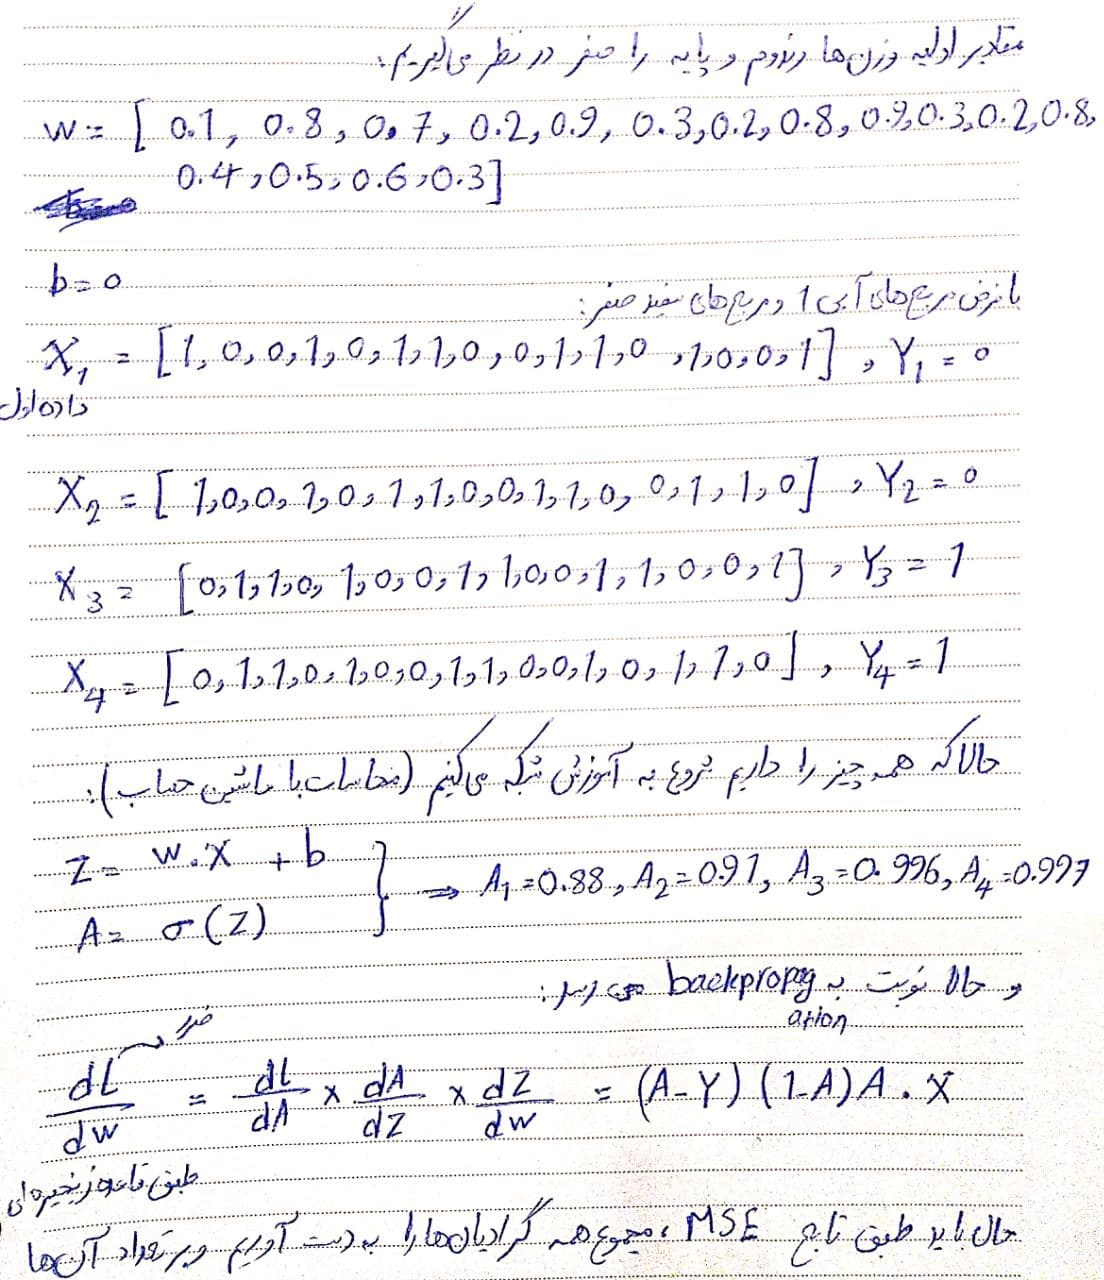 مقادیر اولیه وزن‌ها رندوم و پایه را صفر در نظر می‌گیریم:
w = [ 0.1, 0.8, 0.7, 0.2, 0.9, 0.3, 0.2, 0.8, 0.9, 0.3, 0.2, 0.8,
0.4, 0.5, 0.6, 0.3]
b = 0
با فرض مربع‌های آبی 1 و مربع‌های سفید صفر:
X₁ = [1, 0, 0, 1, 0, 1, 1, 0, 0, 1, 1, 0, 1, 0, 0, 1] , Y₁ = 0
داده اول
X₂ = [ 1, 0, 0, 1, 0, 1, 1, 0, 0, 1, 1, 0, 0, 1, 1, 0] , Y₂ = 0
X₃ = [0, 1, 1, 0, 1, 0, 0, 1, 1, 0, 0, 1, 1, 0, 0, 1] , Y₃ = 1
X₄ = [0, 1, 1, 0, 1, 0, 0, 1, 1, 0, 0, 1, 0, 1, 1, 0] , Y₄ = 1
حالا که همه چیز را داریم شروع به آموزش شبکه می‌کنیم (محاسبات با ماشین حساب):
Z = w.X + b
A = σ(Z) } ⇒ A₁ = 0.88, A₂ = 0.91, A₃ = 0.996, A₄ = 0.997
و حالا نوبت به backpropagation می رسد:
ضرر
dL/dw = dL/dA × dA/dZ × dZ/dw = (A-Y) (1-A)A . X
طبق قاعده زنجیره‌ای
حال باید طبق تابع MSE، مجموع همه گرادیان‌ها را به دست آوریم و بر تعداد آن‌ها